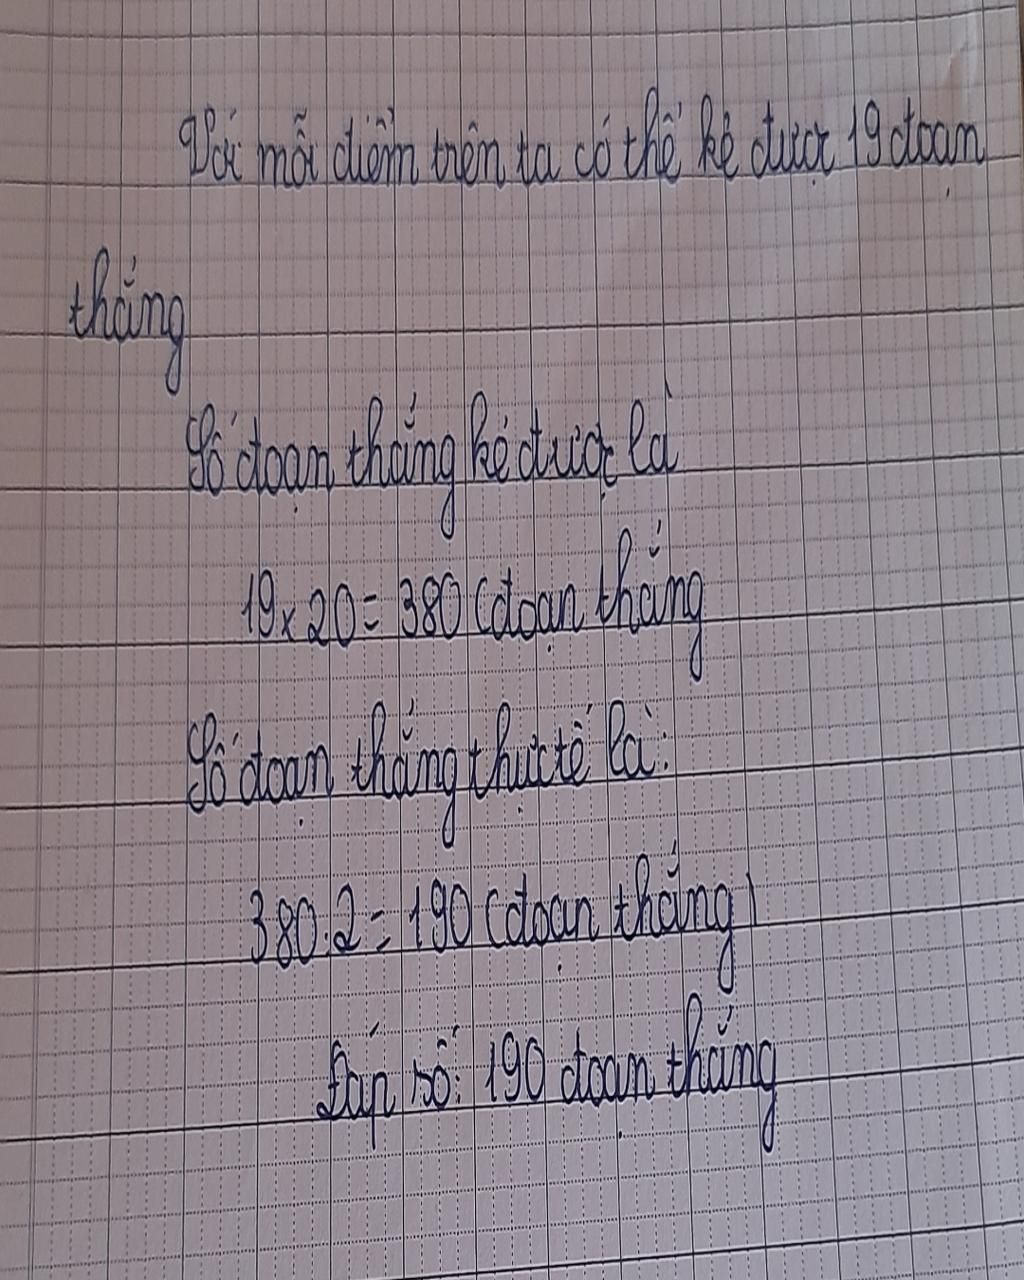 Với mỗi điểm trên ta có thể kẻ được 19 đoạn
thẳng
Số đoạn thẳng kẻ được là
19 x 20 = 380 (đoạn thẳng
Số đoạn thẳng thực tế là:
380 : 2 = 190 (đoạn thẳng)
Đáp số: 190 đoạn thẳng